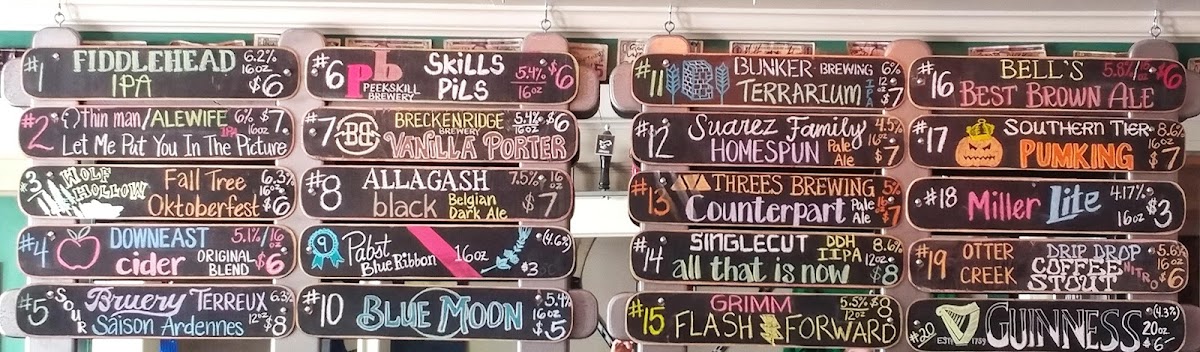 #1 FIDDLEHEAD 6.2%
IPA 16oz $6
#2 Thin man/ALEWIFE 6% IPA 16oz $7
Let Me Put You In The Picture
#3 WOLF HOLLOW Fall Tree 6.3%
Oktoberfest 16oz $6
#4 DOWNEAST 5.1%/16oz
cider ORIGINAL BLEND $6
#5 SOUR Bruery TERREUX 6.3%
Saison Ardennes 12oz $8
#6 pb PEEKSKILL BREWERY SKILLS PILS 5.4% 16oz $6
#7 BB BRECKENRIDGE BREWERY 5.4% 16oz $6
VANILLA PORTER
#8 ALLAGASH 7.5% 16oz
black Belgian Dark Ale $7
9 Pabst Blue Ribbon 16oz (4.6%) $3
#10 BLUE MOON 5.4% 16oz $5
#11 BUNKER BREWING 6%
TERRARIUM IPA 12oz $7
#12 Suarez Family 4.5%
HOMESPUN Pale Ale 16oz $7
#13 THREES BREWING 5%
Counterpart Pale Ale 16oz $7
#14 SINGLECUT DDH IIPA 8.6%
all that is now 12oz $8
#15 GRIMM 5.5% 8oz $8
FLASH FORWARD
#16 BELL'S 5.8%/16oz $6
BEST BROWN ALE
#17 SOUTHERN TIER 8.6%
PUMKING $7
#18 Miller Lite 4.17% 16oz $3
#19 OTTER CREEK DRIP DROP COFFEE STOUT NITRO 5.6% 16oz $6
#20 ESTD 1759 GUINNESS (4.3%) 20oz $6-